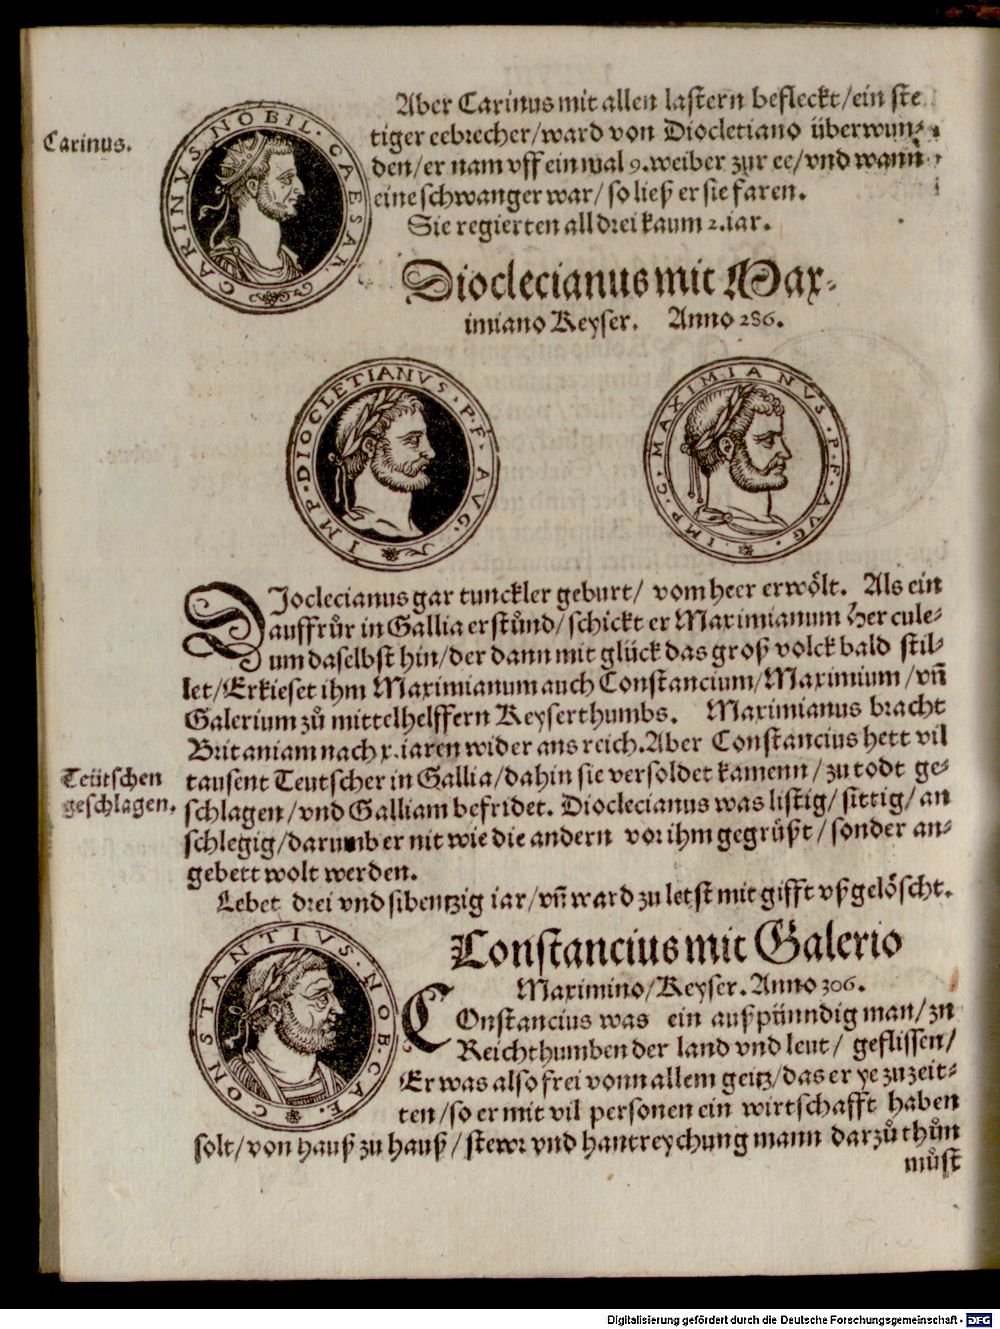 Carinus.
CARINVS·NOBIL·CAESAR·
Aber Carinus mit allen lastern befleckt/ein ste
tiger eebrecher/ward von Diocletiano überwun⸗
den/er nam vff ein mal 9. weiber zur ee/vnd wann
eine schwanger war/so ließ er sie faren.
Sie regierten all drei kaum 2. iar.
Dioclecianus mit Max⸗
imiano Keyser. Anno 286.
IMP·DIOCLETIANVS·P·F·AVG·
IMP·C·MAXIMIANVS·P·F·AVG·
DIoclecianus gar tunckler geburt/ vom heer erwölt. Als ein
auffrůr in Gallia erstůnd/schickt er Maximianum Hercule⸗
um daselbst hin/der dann mit glück das groß volck bald stil⸗
let/Erkieset ihm Maximianum auch Constancium/Maximium/vñ
Galerium zů mittelhelffern Keyserthumbs. Maximianus bracht
Britaniam nach x. iaren wider ans reich. Aber Constancius hett vil
Teütschen
geschlagen.
tausent Teutscher in Gallia/dahin sie versoldet kamenn/zu todt ge⸗
schlagen/vnd Galliam befridet. Dioclecianus was listig/sittig/an
schlegig/darumb er nit wie die andern vor ihm gegrüßt/sonder an⸗
gebett wolt werden.
Lebet drei vnd sibentzig iar/vñ ward zu letst mit gifft vßgelöscht.
CONSTANTIVS·NOB·CAE·
Constancius mit Galerio
Maximino/Keyser. Anno 306.
COnstancius was ein außpünndig man/zu
Reichthumben der land vnd leut/ geflissen/
Er was also frei vonn allem geitz/das er ye zu zeit⸗
ten/so er mit vil personen ein wirtschafft haben
solt/von hauß zu hauß/stewr vnd hantreychung mann darzů thůn
můst
Digitalisierung gefördert durch die Deutsche Forschungsgemeinschaft - DFG